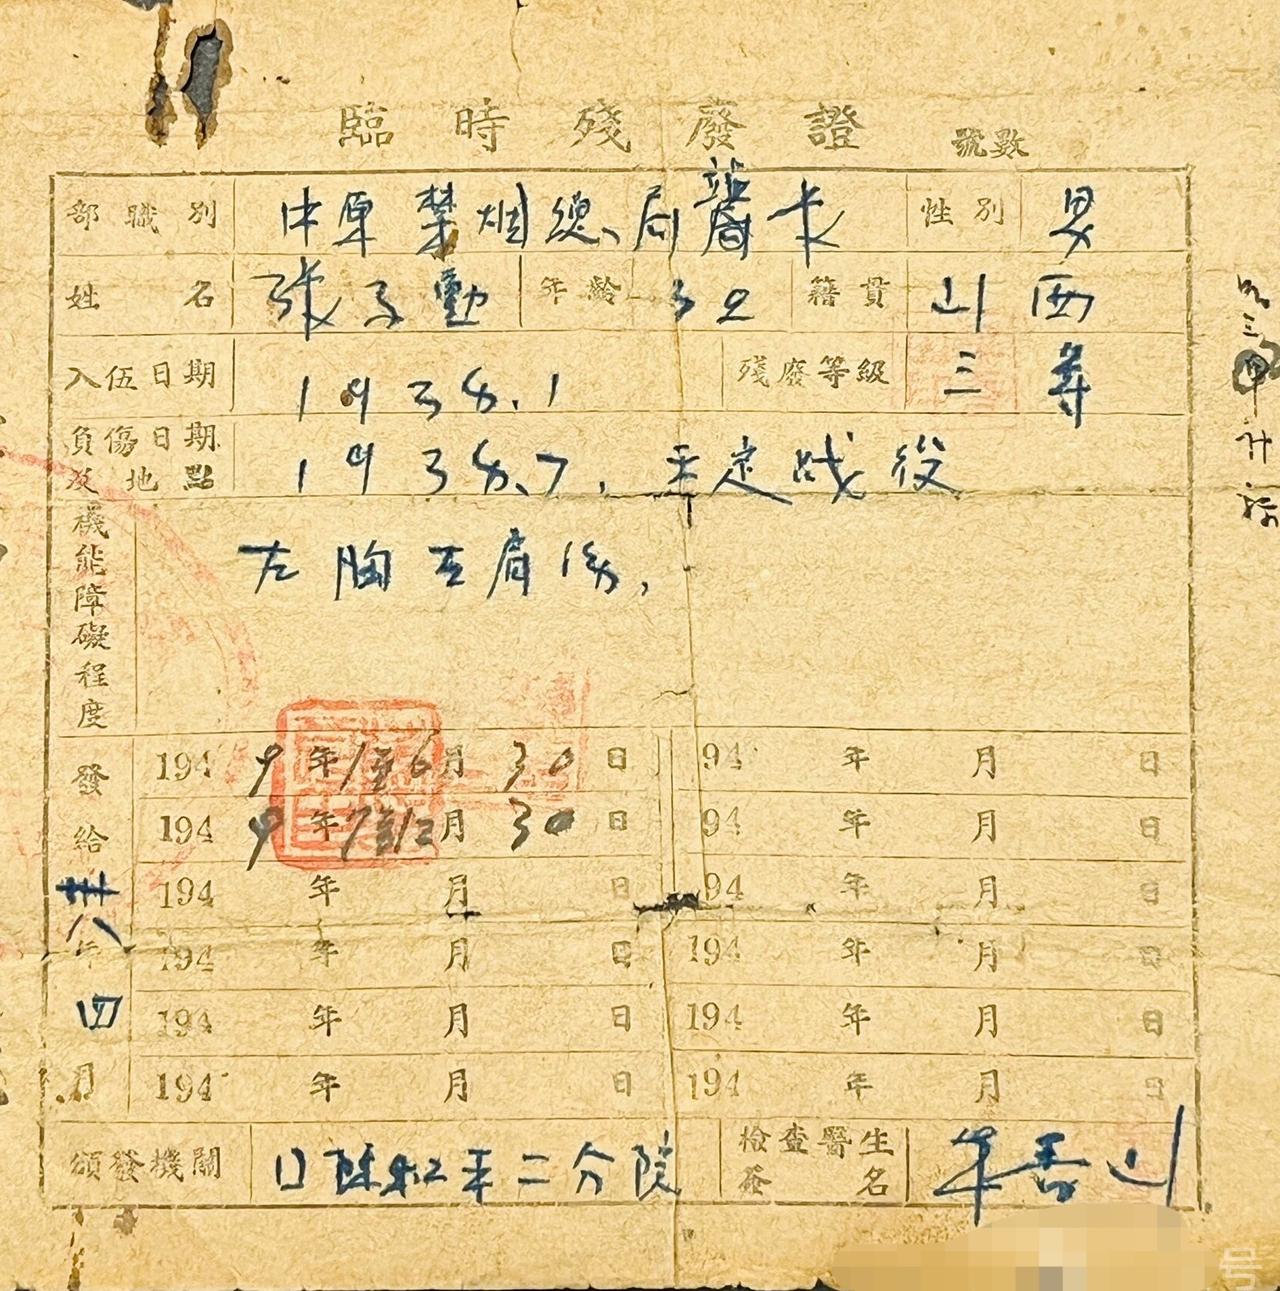 臨時殘廢證 號數
部職別 中原禁烟總局 性別 男
姓名 張子勳 年齡 32 籍貫 山西
入伍日期 1938.1 殘廢等級 三等
負傷日期及地點 1938.7. 平定战役
機能障礙程度 左胸 肩傷,
發給 廿八年四月
1949年1至6月30日 194 年 月 日
1949年7至12月30日 194 年 月 日
194 年 月 日 194 年 月 日
194 年 月 日 194 年 月 日
194 年 月 日 194 年 月 日
194 年 月 日 194 年 月 日
頒發機關 和平二分院 檢查醫生簽名 善山
号